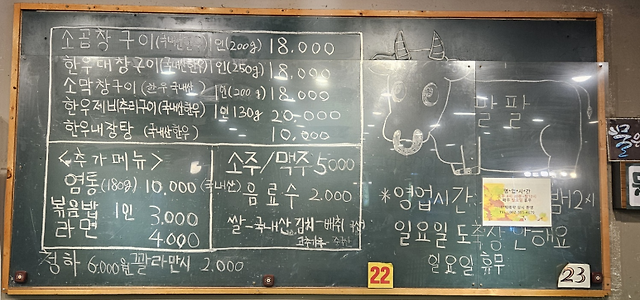 소곱창구이(국내산한우) 1인(200g) 18,000
한우대창구이(국내산한우) 1인(250g) 18,000
소막창구이(한우국내산) 1인(200g) 18,000
한우제비추리구이(국내산한우) 1인 130g 20,000
한우내장탕 (국내산한우) 10,000
<추가메뉴>
염통(180g) 10,000 (국내산)
볶음밥 1인 3,000
라면 4,000
소주/맥주 5000
음료수 2.000
쌀-국내산 김치-배추 국산
고추가루-
청하 6.000원 깔라만시 2.000
팔팔
*영업시간: 밤2시
영·업·시·간
일요일도 안해요
일요일 휴무
22
23
물은